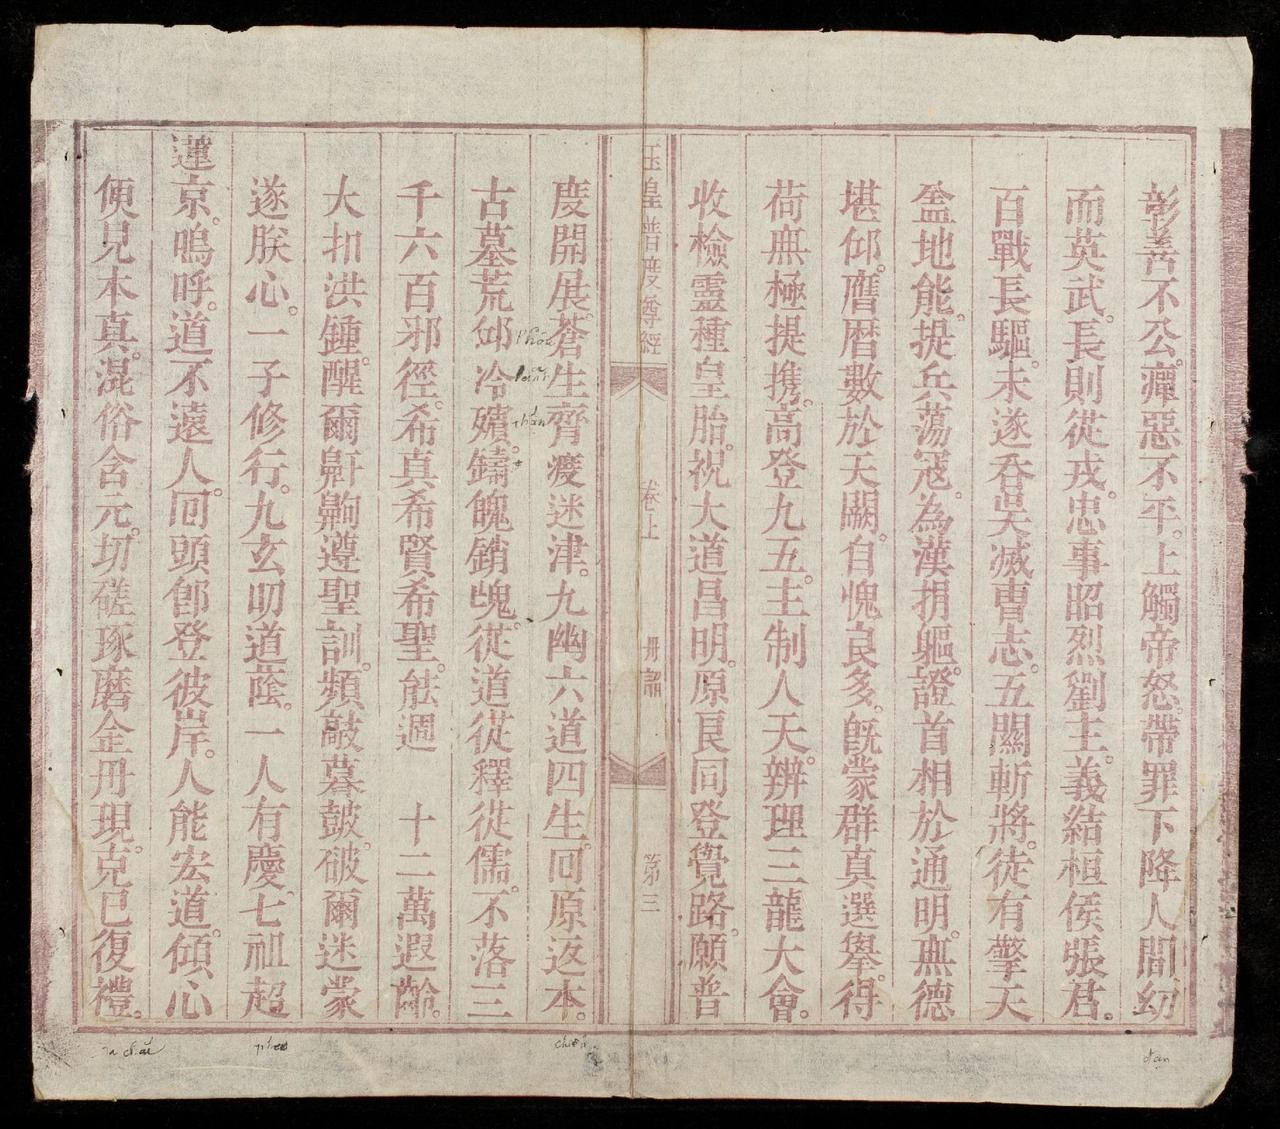 彰善不公。癉惡不平。上觸帝怒。帶罪下降人間。幼
而英武。長則從戎。忠事昭烈劉主。義結桓侯張君。
百戰長驅。未遂吞吳滅曹志。五關斬將。徒有擎天
盖地能。提兵蕩冦。為漢捐軀。證首相於通明。無德
堪仰。膺曆數於天闕。自愧良多。旣蒙群真選舉。得
荷無極提携。高登九五。主制人天。辦理三龍大會。
收檢靈種皇胎。祝大道昌明。原艮同登覺路。願普
玉皇普度尊經 卷上 第三
度開展。蒼生齊度迷津。九幽六道四生。回原返本。
古墓荒邱冷殯。鑄魄銷愧。從道從釋從儒。不落三
千六百邪徑。希真希賢希聖。能週 十二萬遐齡。
大扣洪鍾。醒爾鼾齁遵聖訓。頻敲暮鼓。破爾迷蒙
遂朕心。一子修行。九玄叨道蔭。一人有慶。七祖超
蓮京。嗚呼。道不遠人。回頭卽登彼岸。人能宏道。傾心
便見本真。混俗含元。切磋琢磨金丹現。克已復禮。
chiến
đan